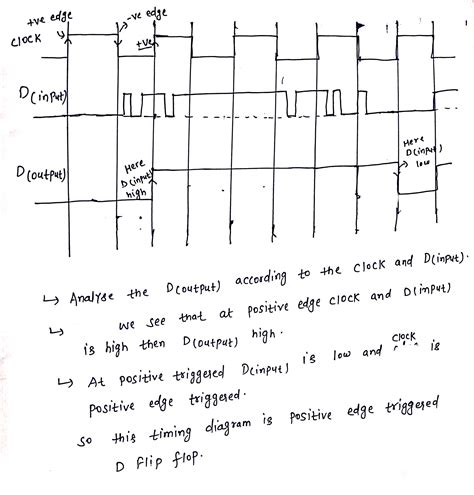 +ve edge
-ve edge
Clock
+ve
D(input)
D(output)
Here
D(input)
high
Here
D(input)
low
↳ Analyse the D(output) according to the clock and D(input).
↳ we see that at positive edge clock and D(input)
is high then D(output) high.
↳ At positive triggered D(input) is low and clock is
positive edge triggered.
so this timing diagram is positive edge triggered
D flip flop.